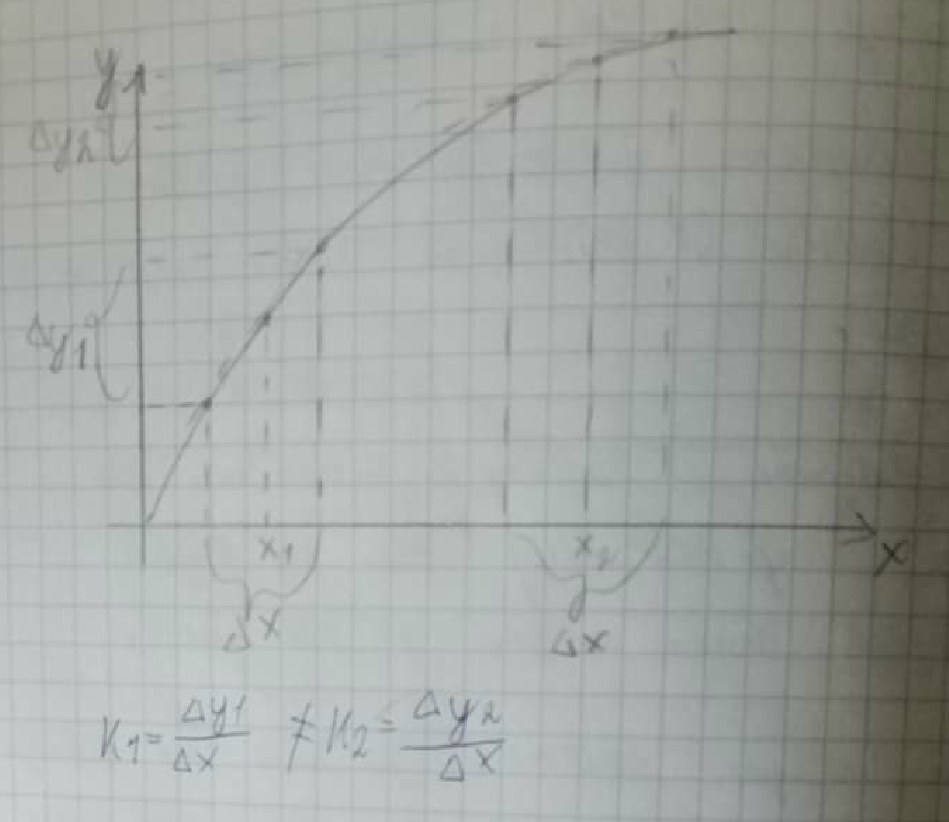 y
Δy2
Δy1
x1 x2 x
Δx Δx
K1 = Δy1/Δx ≠ K2 = Δy2/Δx